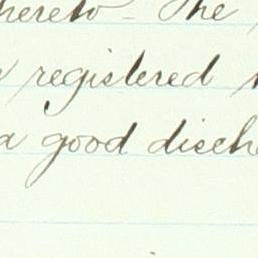 thereto - The
registered
a good disch